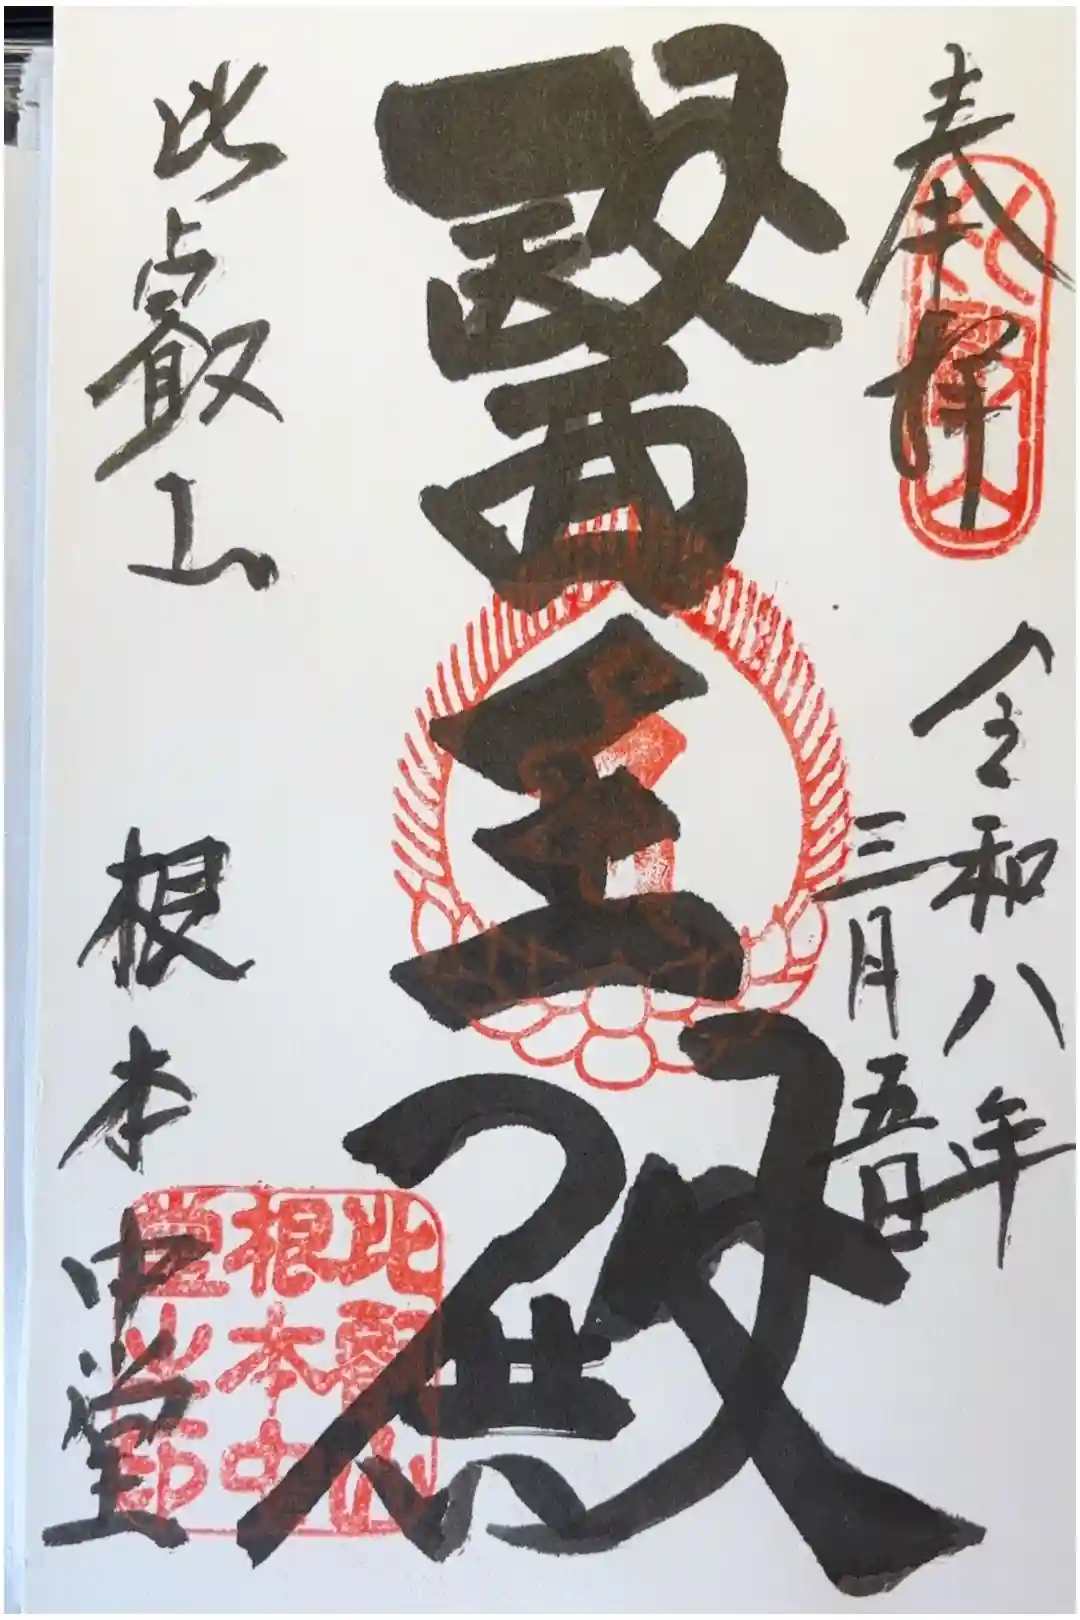 奉拝
令和八年
三月五日
醫王殿
比叡山
根本中堂
比叡山
根本中
堂之印